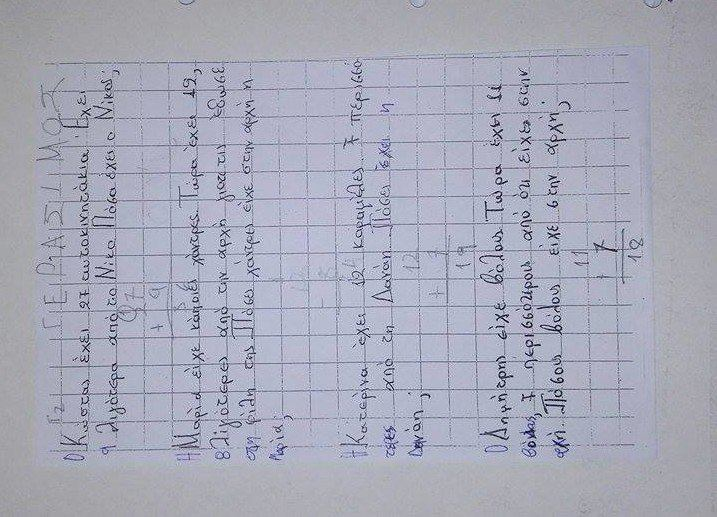 ΓΕΡΑΣΙΜΟΣ
Ο Κώστας έχει 27 αυτοκινητάκια. Έχει
9 λιγότερα από το Νίκο. Πόσα έχει ο Νίκος;
27
+ 9
36
Η Μαρία είχε κάποιες χάντρες. Τώρα έχει 19,
8 λιγότερες από την αρχή γιατί έδωσε
στη φίλη της. Πόσες χάντρες είχε στην αρχή η
Μαρία;
Η Κατερίνα έχει 12 καραμέλες 7 περισσό
τερες από τη Δανάη. Πόσες έχει η
Δανάη;
12
+ 7
19
Ο Δημήτρης είχε βόλους. Τώρα έχει 11
βόλους, 7 περισσότερους από ότι είχε στην
αρχή. Πόσους βόλους είχε στην αρχή;
11
+ 7
18